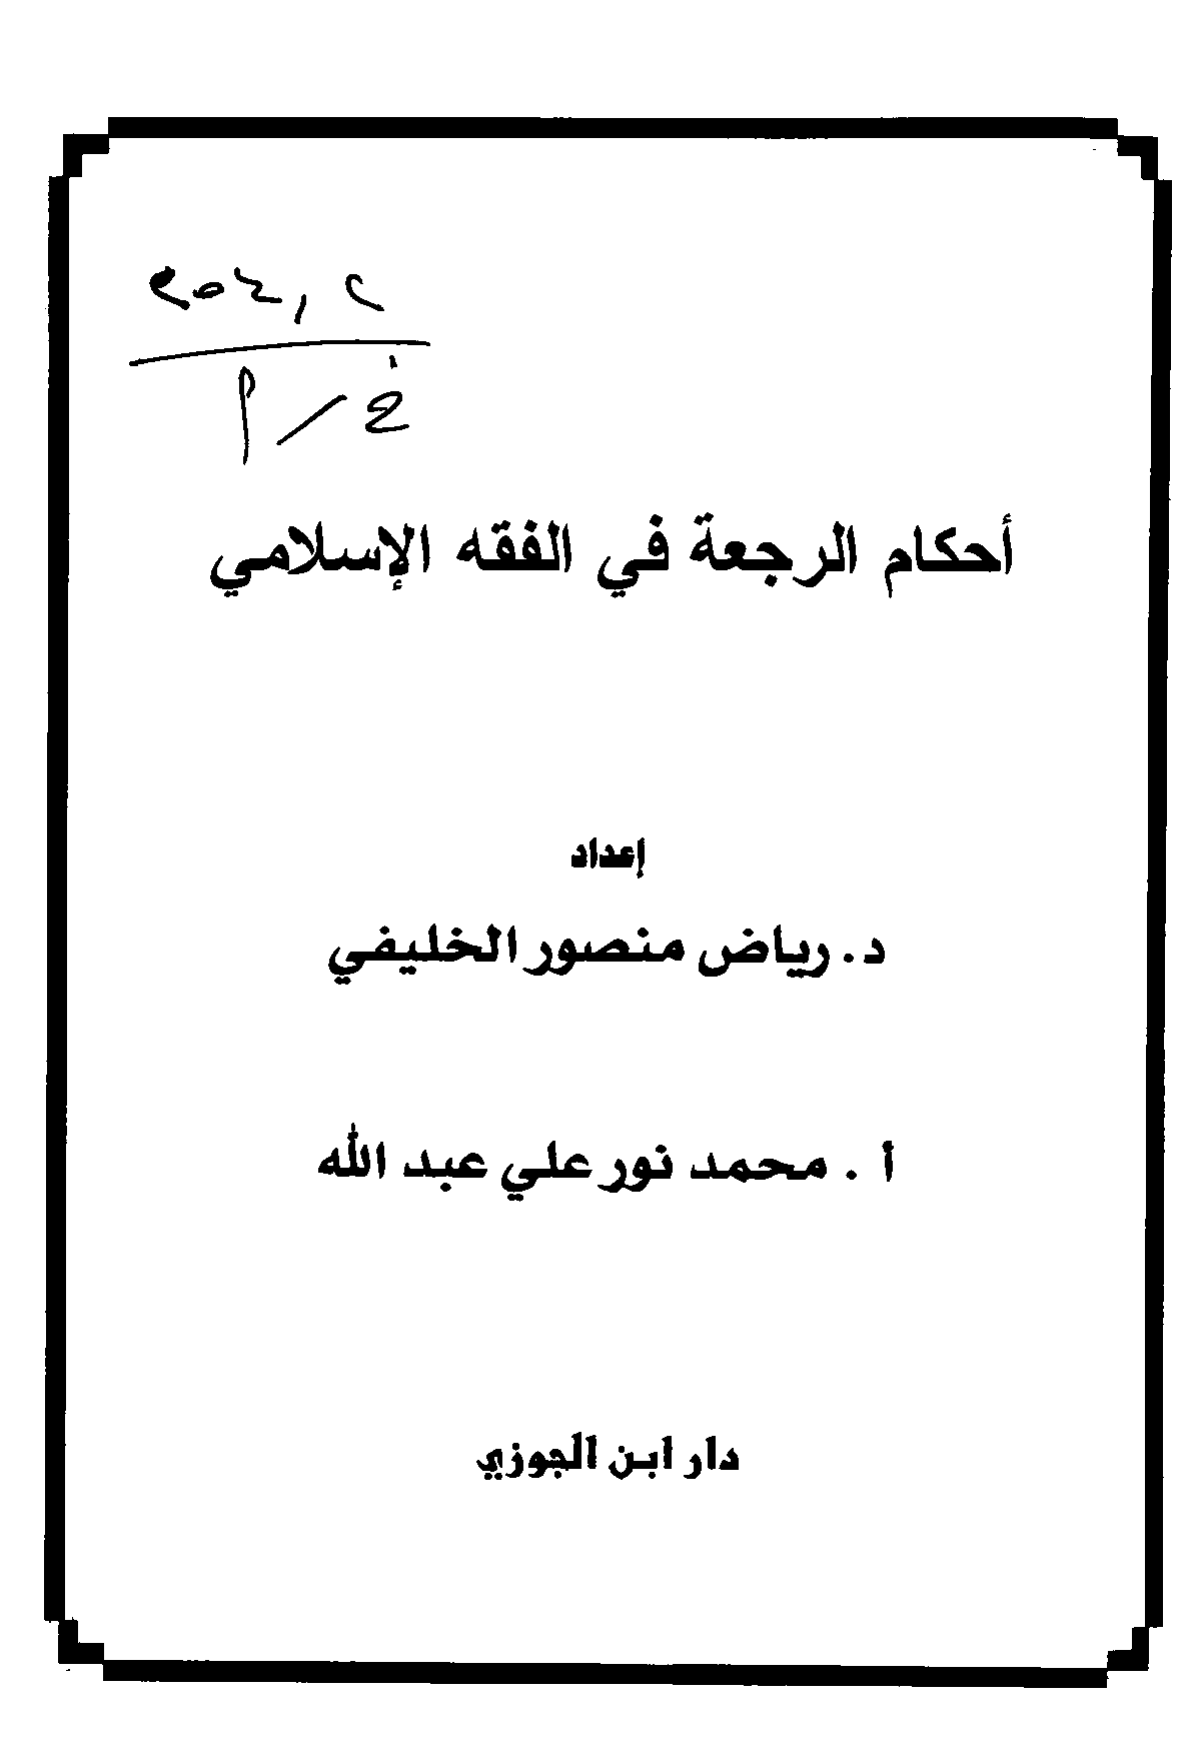 أحكام الرجعة في الفقه الإسلامي
إعداد
د. رياض منصور الخليفي
أ . محمد نور علي عبد الله
دار ابن الجوزي